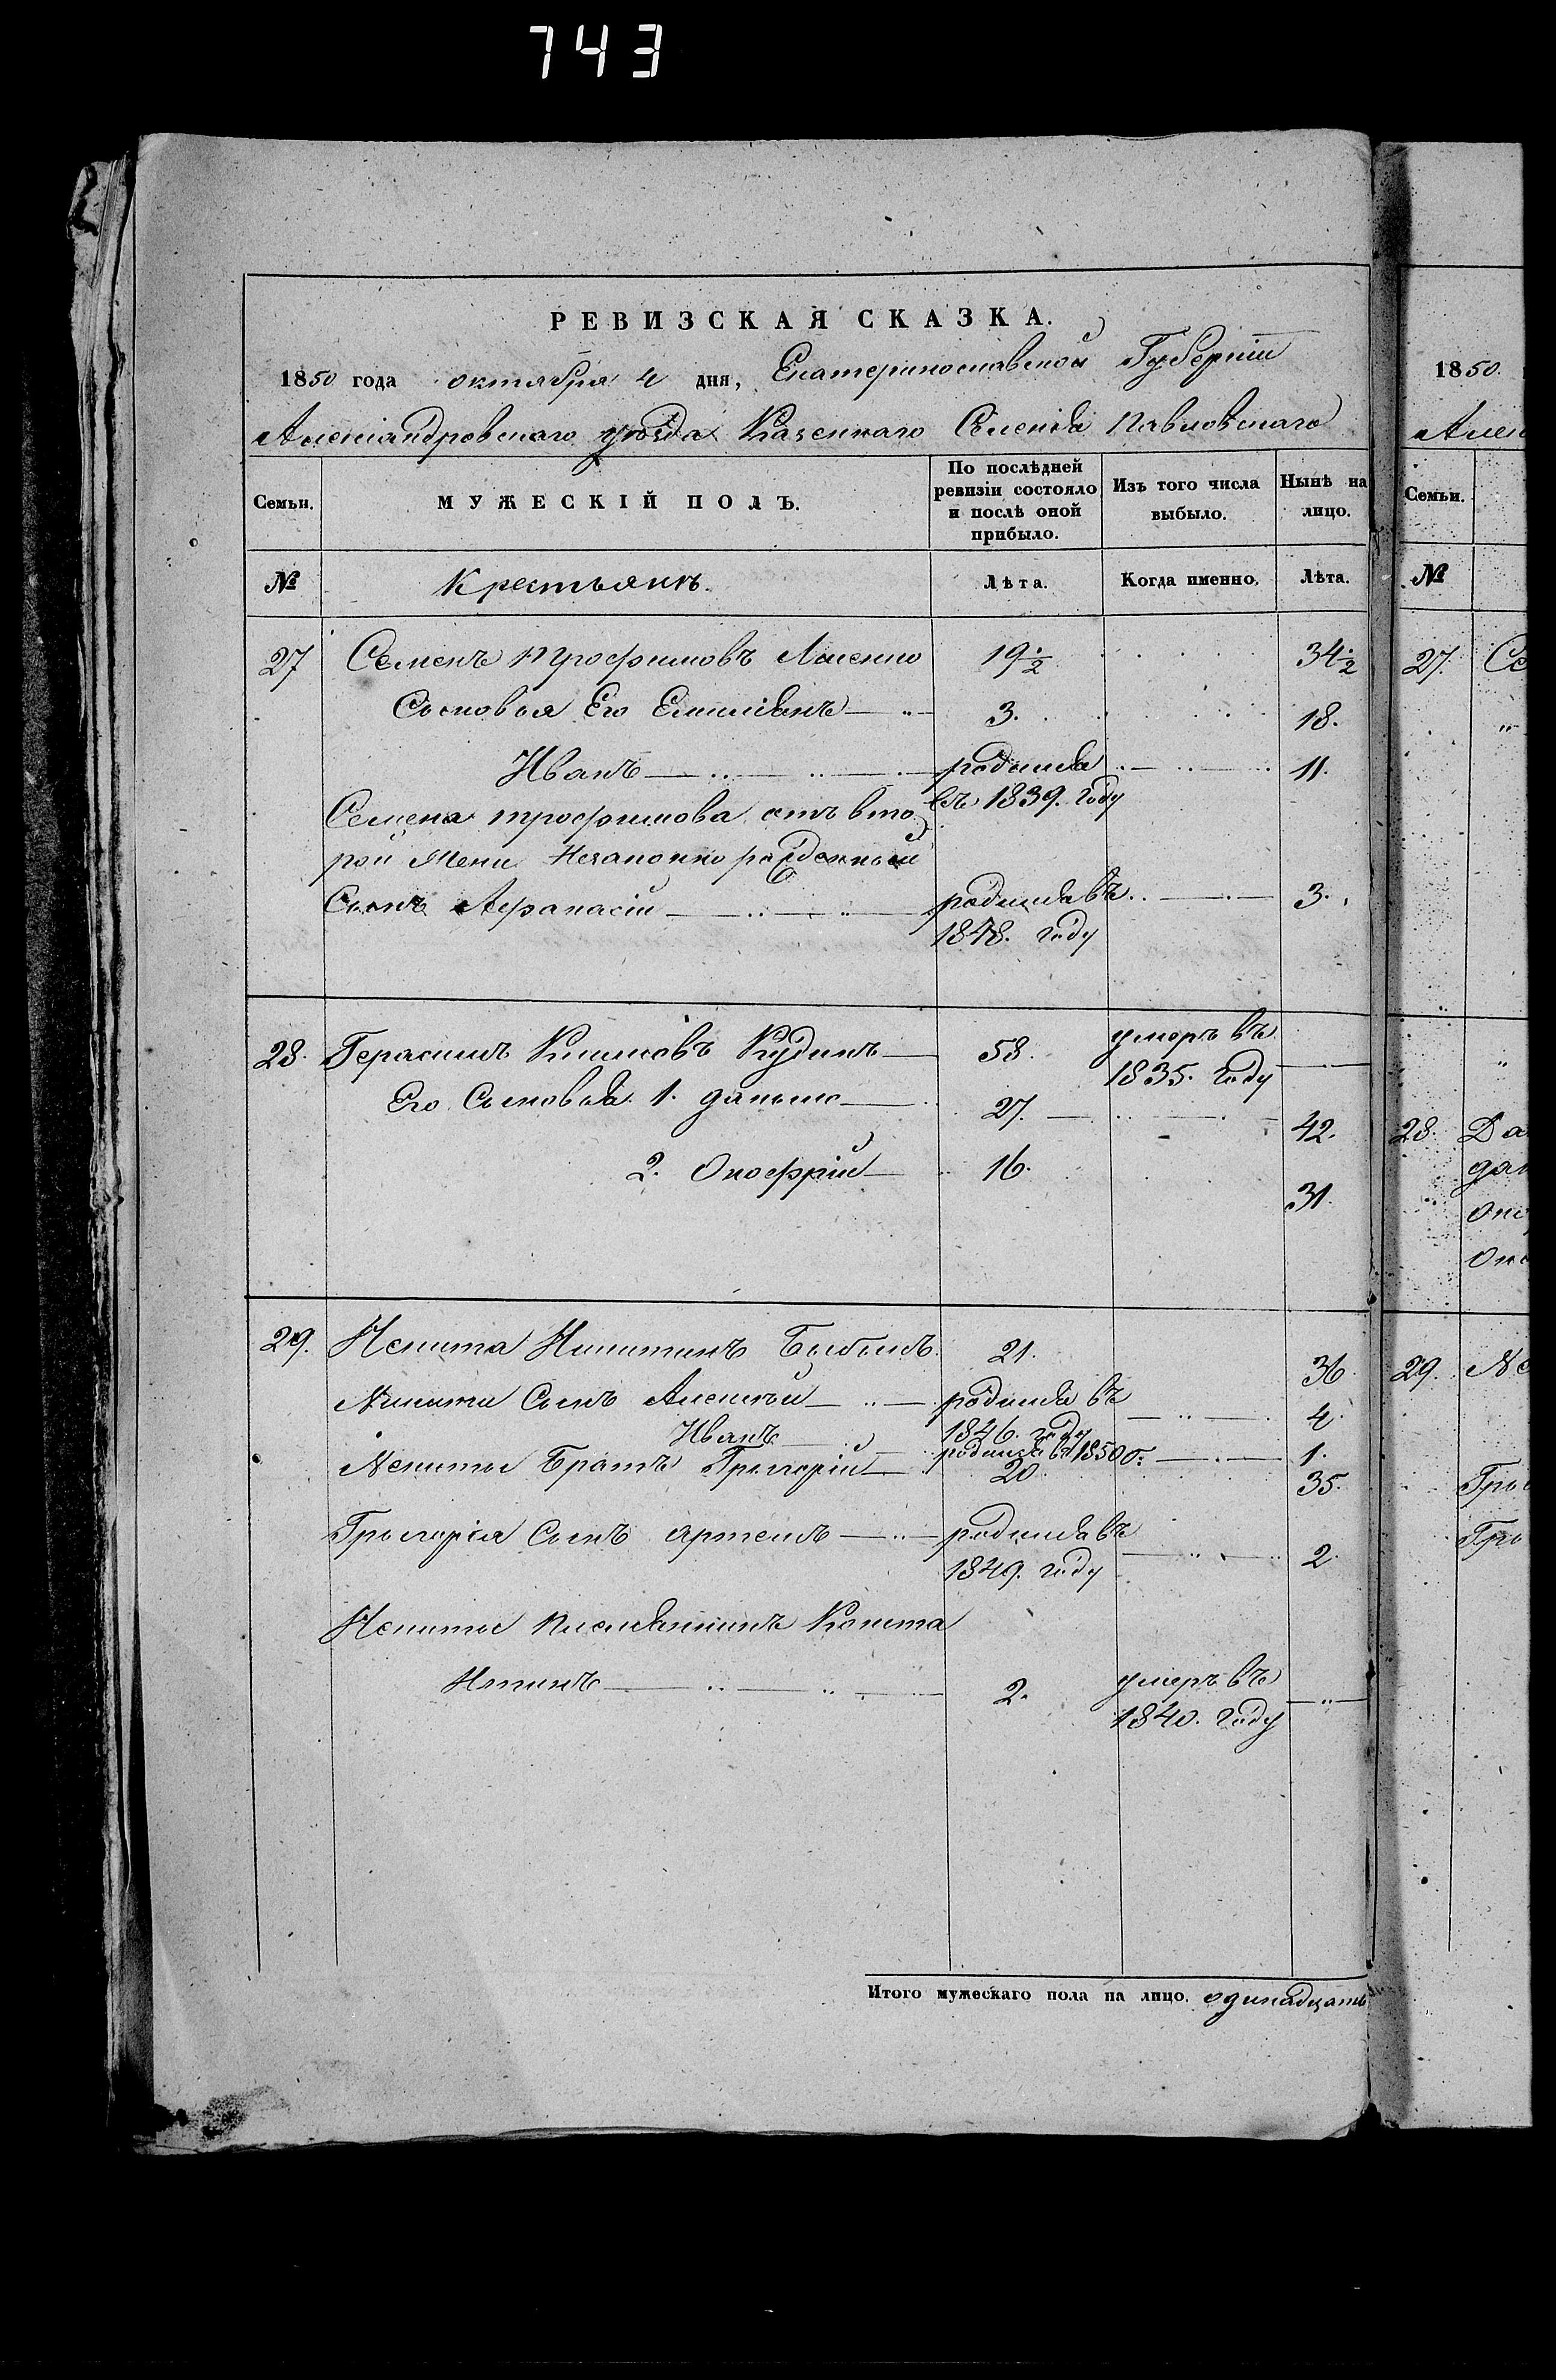 743
РЕВИЗСКАЯ СКАЗКА.
1850 года октября 4 дня, Екатеринославской Губернии
Александровскаго уезда Казеннаго Селения Павловскаго
Семьи. МУЖЕСКІЙ ПОЛЪ. По послѣдней ревизіи состояло и послѣ оной прибыло. Изъ того числа выбыло. Нынѣ на лицо.
№ Крестьянъ. Лѣта. Когда именно. Лѣта.
27 Семенъ Трофимовъ 19 1/2 34 1/2
Сыновья Его Емилианъ 3. 18.
Иванъ родился 11.
въ 1839. году
Семена Трофимова отъ вто
рой Жены рожденный
Сынъ Афанасій родился въ 3.
1848. году
28. Герасимъ Климовъ Кудинъ 58. умеръ въ
1835. году
Его Сыновья 1. Данило 27. 42.
2. Онофрій 16. 31.
29. Некита Никитинъ 21. 36
Никиты Сынъ Алексей родился въ 4.
1846. году
Иванъ родился въ 1850 г. 1.
Некиты Братъ Григорій 20. 35.
Григорія Сынъ Артемъ родился въ 2.
1849. году
Некиты племянникъ
2. умеръ въ
1840. году
Итого мужескаго пола на лицо. одинадцать
1850.
Семьи.
№
27. Се
28. Да
29. Не